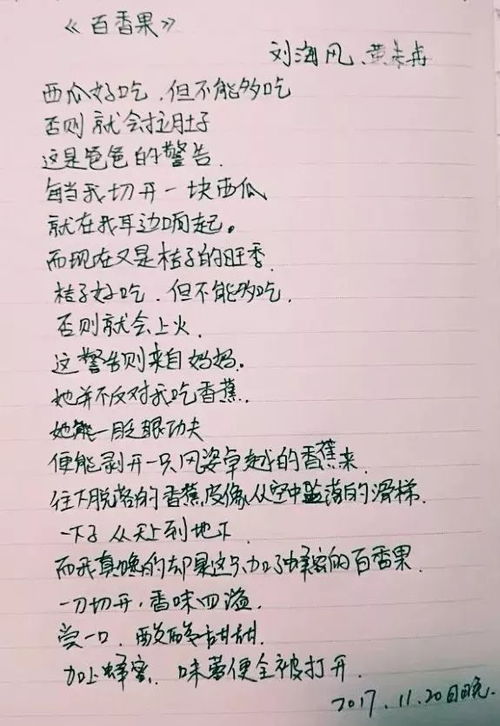 《百香果》
刘海风、黄
西瓜好吃，但不能多吃
否则就会拉肚子
这是爸爸的警告.
每当我切开一块西瓜
就在我耳边响起。
而现在又是桔子的旺季.
桔子好吃，但不能多吃.
否则就会上火.
这警告则来自妈妈.
她并不反对我吃香蕉.
她能一眨眼功夫
便能剥开一只风姿卓越的香蕉来.
往下脱落的香蕉皮像从空中坠落的滑梯.
一下子从天上到地下
而我真馋的却是这只加了蜂蜜的百香果.
一刀切开，香味四溢.
尝一口，酸酸甜甜.
加上蜂蜜，味蕾便全被打开.
2017.11.20日晚.